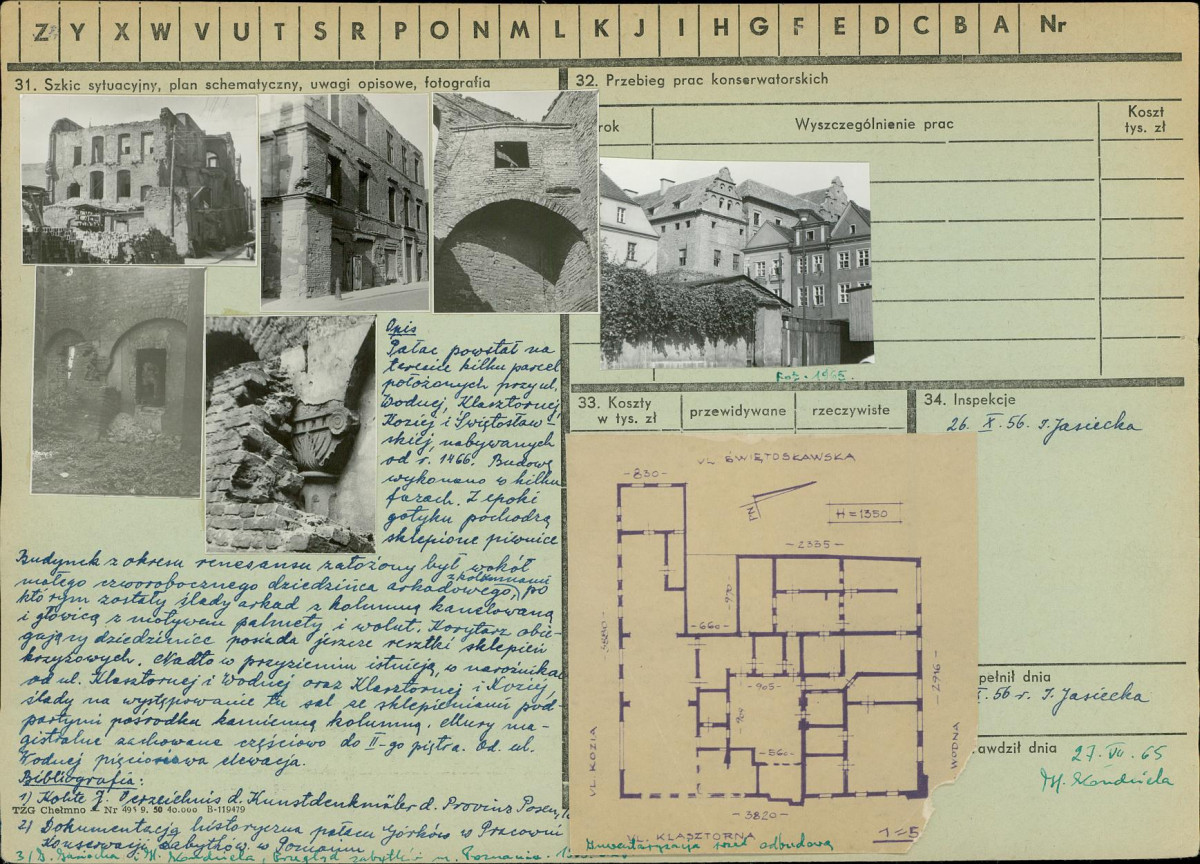 Z Y X W V U T S R P O N M L K J I H G F E D C B A Nr
31. Szkic sytuacyjny, plan schematyczny, uwagi opisowe, fotografia
Opis
Pałac powstał na
terenie kilku parcel
położonych przy ul.
Wodnej, Klasztornej,
Koziej i Świętosław-
skiej, nabywanych
od r. 1466. Budowę
wykonano w kilku
fazach. Z epoki
gotyku pochodzą
sklepione piwnice
Budynek z okresu renesansu założony był wokół
małego czworobocznego dziedzińca arkadowego, z kolumnami po
którym zostały ślady arkad z kolumną kanelowaną
i głowicą z motywem palmety i wolut. Korytarz obie-
gający dziedziniec posiada jeszcze resztki sklepień
krzyżowych. Nadto w przyziemiu istnieją, w narożnikach
od ul. Klasztornej i Wodnej oraz Klasztornej i Koziej,
ślady na występowanie tu sal ze sklepieniami pod-
partymi pośrodku kamienną kolumną. Mury ma-
gistralne zachowane częściowo do II-go piętra. Od ul.
Wodnej pięcioosiowa elewacja.
Bibliografia:
1) Kohte J. Verzeichnis d. Kunstdenkmäler d. Provinz Posen,
TZG Chełmno Nr 495 9. 50 40.000 B-119479
2) Dokumentacja historyczna pałacu Górków w Pracowni
Konserwacji Zabytków w Poznaniu
3/ D. i H. Kondziela, Przegląd zabytków m. Poznania
32. Przebieg prac konserwatorskich
rok
Wyszczególnienie prac
Koszt
tys. zł
Fot. 1965.
33. Koszty
w tys. zł
przewidywane
rzeczywiste
UL. ŚWIĘTOSŁAWSKA
830
N
H = 1350
2335
970
660
3880
905
904
560
2946
UL. KOZIA
WODNA
3820
UL. KLASZTORNA
Inwentaryzacja przed odbudową
34. Inspekcje
26. X. 56. I. Jasiecka
pełnił dnia
56 r. I. Jasiecka
awdził dnia
27. VII. 65
H. Kondziela